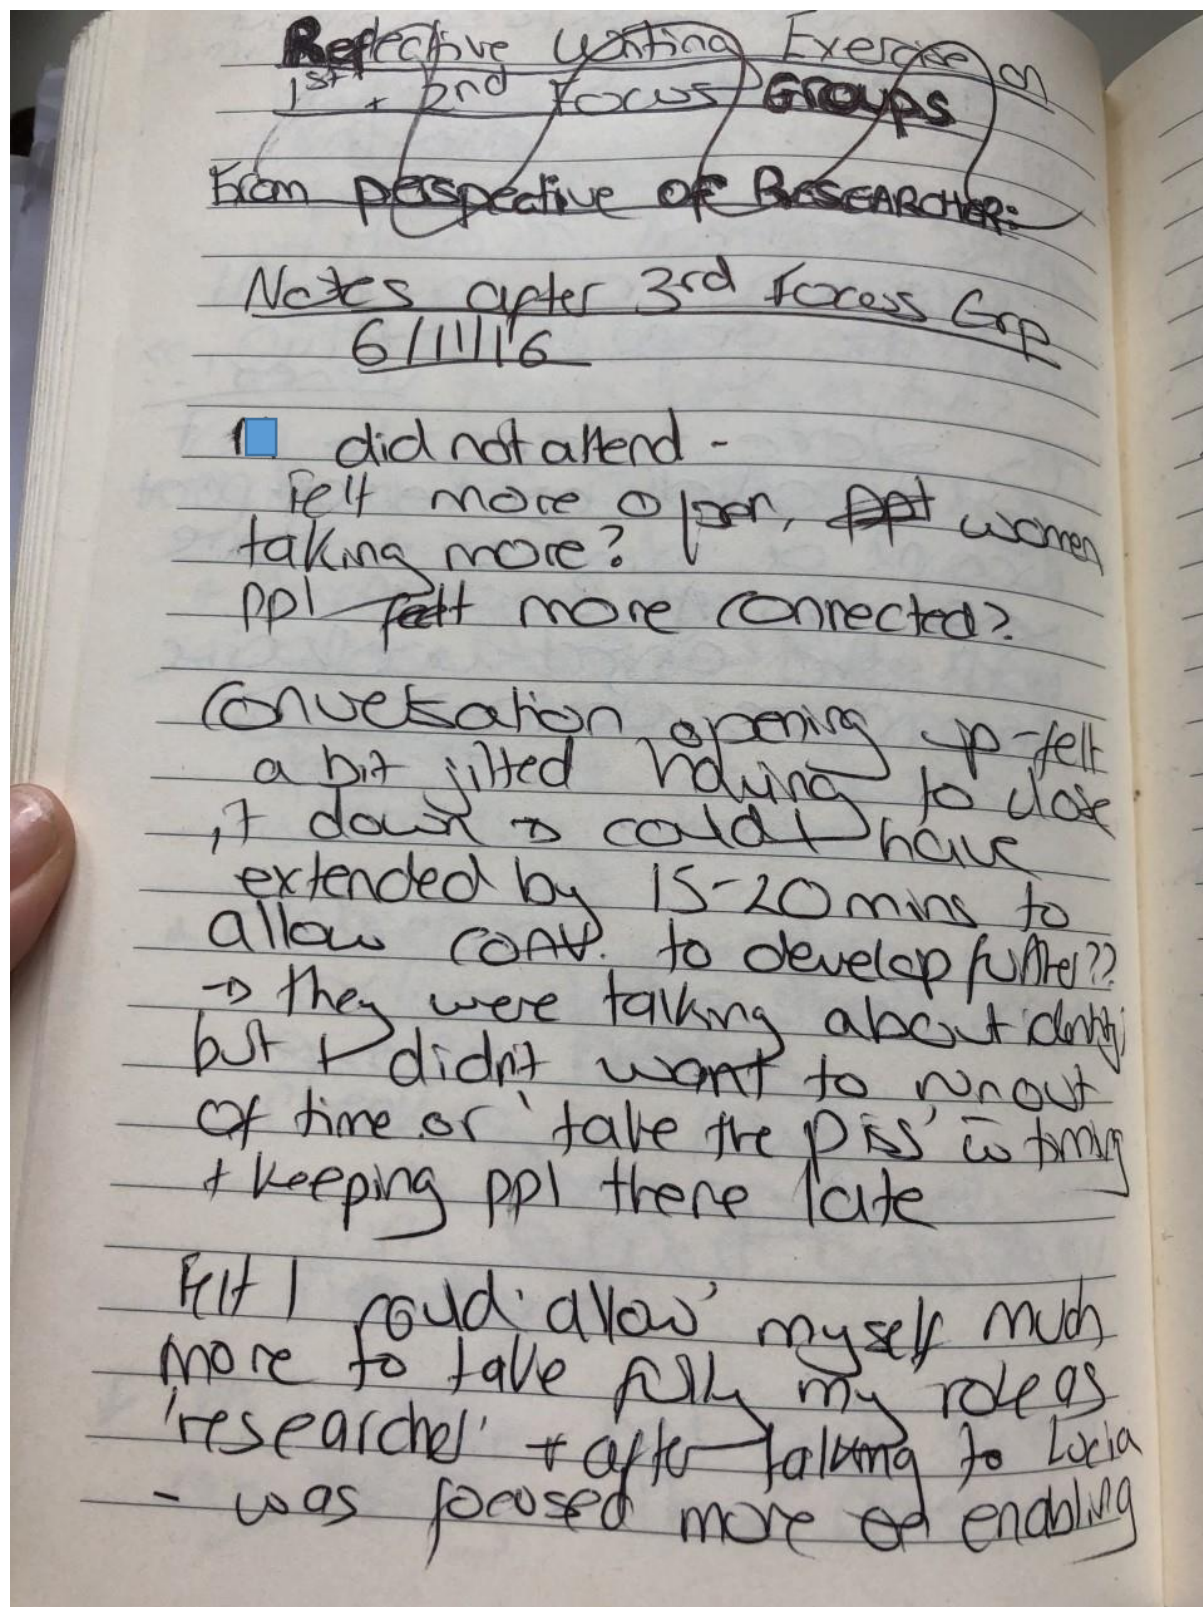 Reflective Writing Exercise on
1st + 2nd Focus GROUPS
From perspective of RESEARCHER:
Notes after 3rd Focess Grp
6/11/16
did not attend -
Felt more open, ppt women
talking more?
ppl felt more connected?
Conversation opening up - felt
a bit jilted having to close
it down → could I have
extended by 15-20 mins to
allow conv. to develop further??
→ they were talking about identity
but I didn't want to run out
of time or 'take the piss' w timing
+ keeping ppl there late
Felt I could 'allow' myself much
more to take fully my role as
'researcher' + after talking to Lucia
- was focused more on enabling